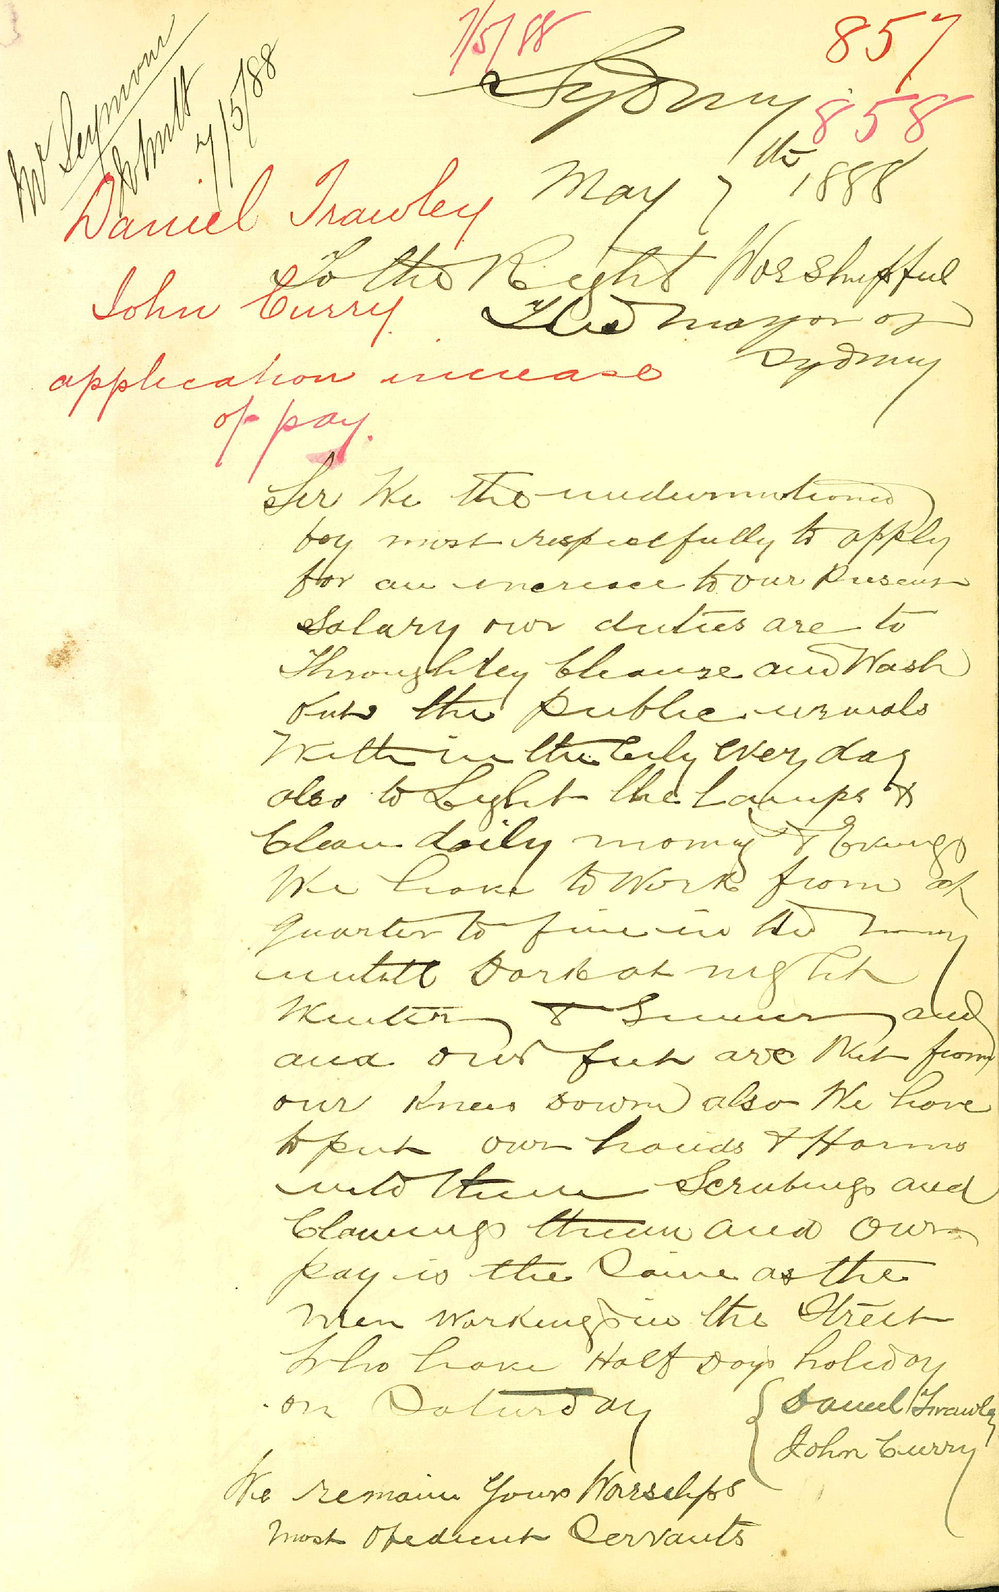 7/5/88
857
858
Mr Seymour
Submitt
7/5/88
Sydney
May 7th 1888
Daniel Frawley
John Curry
application increase
of pay.
To the Right Worshipful
The mayor of
Sydney
Sir We the undermntioned
beg most respectfully to apply
for an increase to our Present
Salary our duties are to
Throughtley Cleanse and Wash
out the public urinals
With in the City every day
also to Light the Lamps &
Clean daily morng & Evengs
We have to Work from at
quarter to five in the morng
untill Dark at night
Winter & Summer and
and our feet are Wet from
our Knees Down also We have
to put our hands & Harms
into them Scrubing and
Claning them and our
pay is the Same as the
men working in the Street
Who have Half Days holiday
on Saturday
Daniel Frawley
John Curry
We remain Your Worschips
most Obedient Servants